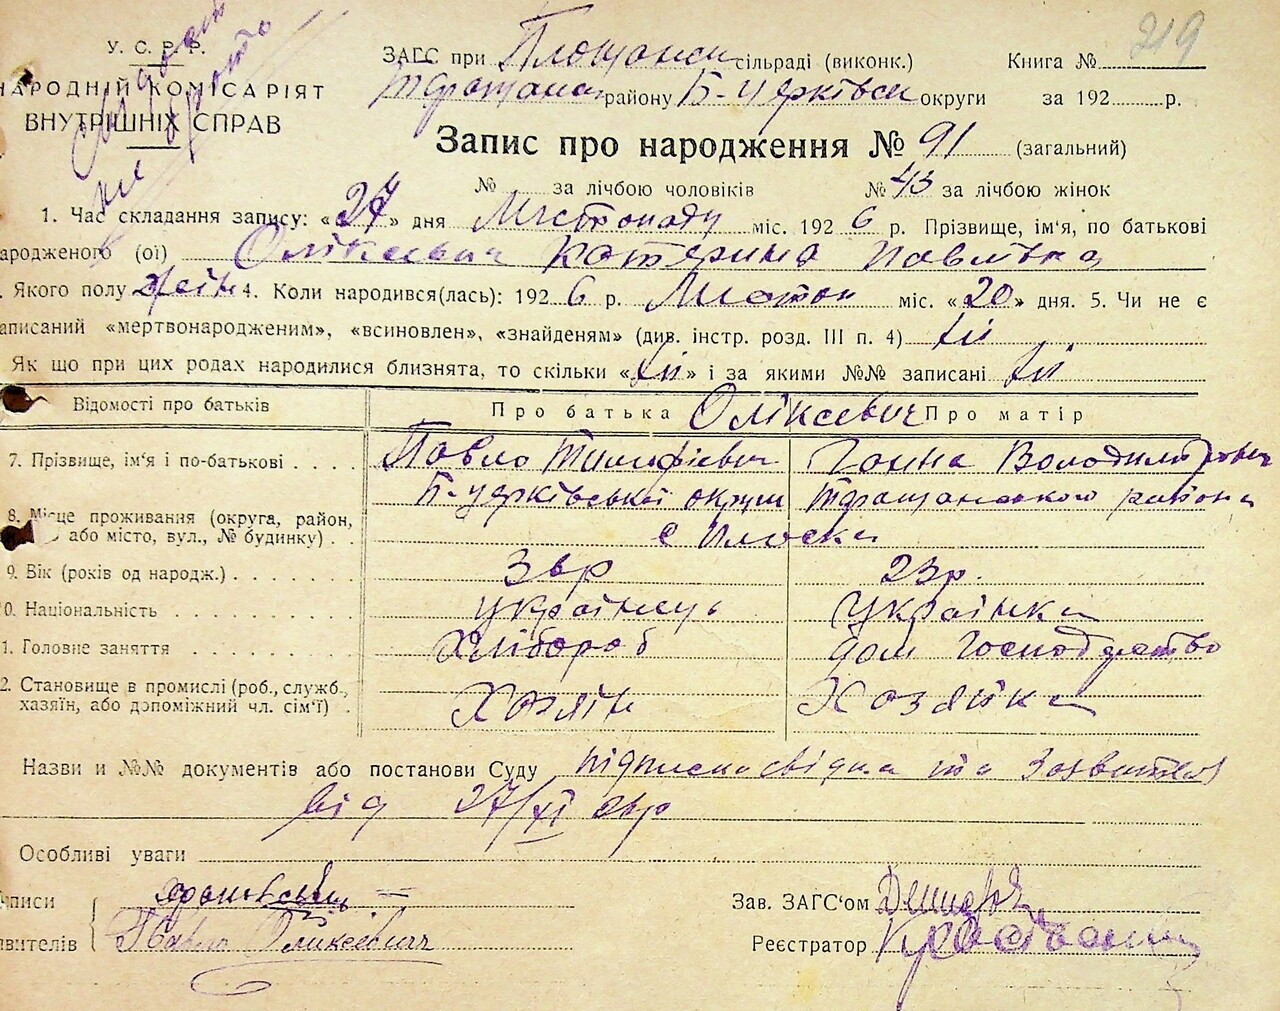 219
У. С. Р. Р.
НАРОДНІЙ КОМІСАРІЯТ
ВНУТРІШНІХ СПРАВ
ЗАГС при Площанськ сільраді (виконк.) Книга №
Таращанс району Б-Церківськ округи за 192 р.
Запис про народження № 91 (загальний)
№ за лічбою чоловіків № 43 за лічбою жінок
1. Час складання запису: «27» дня Листопаду міс. 1926 р. Прізвище, ім'я, по батькові
народженого (ої) Оліксевич Катерина Павлівна
Якого полу жін 4. Коли народився(лась): 1926 р. Листоп міс. «20» дня. 5. Чи не є
записаний «мертвонародженим», «всиновлен», «знайденям» (див. інстр. розд. III п. 4) ні
Як що при цих родах народилися близнята, то скільки «ні» і за якими №№ записані ні
Відомості про батьків Про батька Оліксевич Про матір
7. Прізвище, ім'я і по-батькові Павло Тимофієвич Ганна Володимировн
8. Місце проживання (округа, район, Б-Церківської округи Таращанського района
або місто, вул., № будинку) с Плоска
9. Вік (років од народж.) 34р 23р.
0. Національність українець українка
1. Головне заняття Хлібороб дом господарство
2. Становище в промислі (роб., служб.,
хазяїн, або допоміжний чл. сім'ї) Хозяїн Хозяйка
Назви и №№ документів або постанови Суду підписка свідка та
від 27/XI 26р
Особливі уваги
Зав. ЗАГС'ом
Павло Оликсевич
Реєстратор